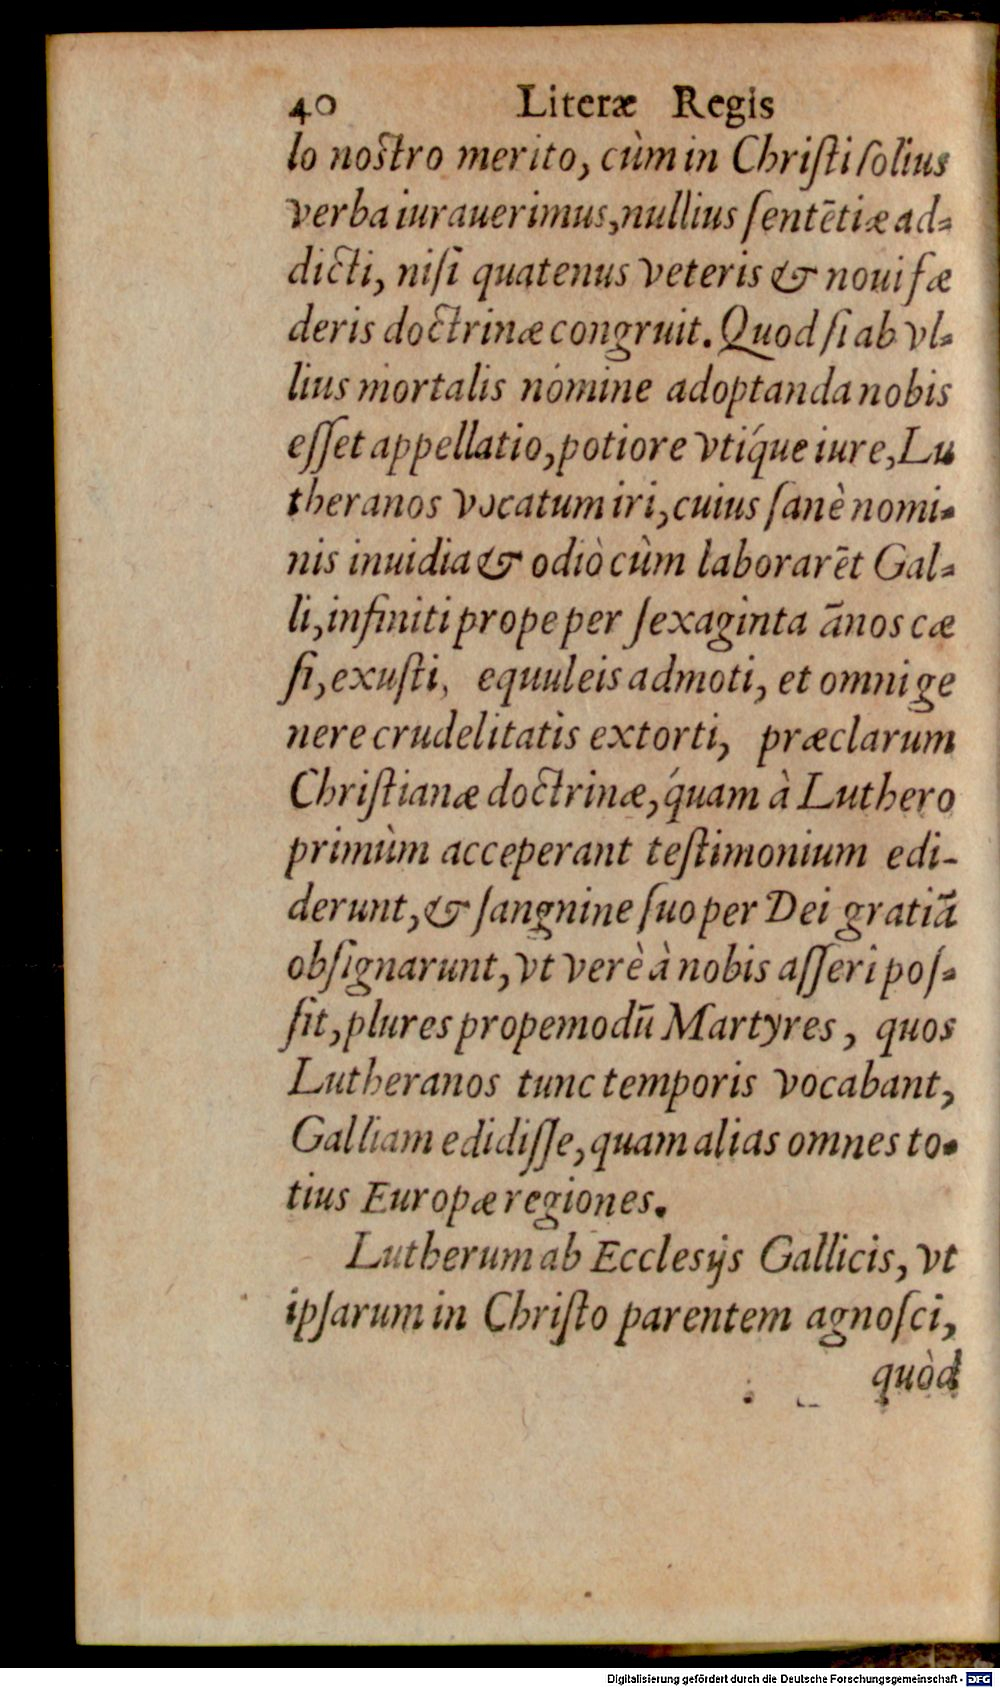 40 Literæ Regis
lo nostro merito, cùm in Christi ſolius
verba iurauerimus, nullius ſentētiæ ad=
dicti, niſi quatenus veteris & noui fæ
deris doctrinæ congruit. Quod ſi ab vl=
lius mortalis nomine adoptanda nobis
eſſet appellatio, potiore vtiq́ue iure, Lu
theranos vocatum iri, cuius ſanè nomi=
nis inuidia & odio cùm laborarēt Gal=
li, infiniti prope per ſexaginta ānos cæ
ſi, exuſti, equuleis admoti, et omni ge
nere crudelitatis extorti, præclarum
Chriſtianæ doctrinæ, q́uam à Luthero
primùm acceperant teſtimonium edi-
derunt, & ſangnine ſuo per Dei gratiā
obſignarunt, vt verè à nobis aſſeri poſ=
ſit, plures propemodū Martyres, quos
Lutheranos tunc temporis vocabant,
Galliam edidiſſe, quam alias omnes to=
tius Europæ regiones.
Lutherum ab Ecclesijs Gallicis, vt
ipſarum in Chriſto parentem agnoſci,
quòd
Digitalisierung gefördert durch die Deutsche Forschungsgemeinschaft - DFG